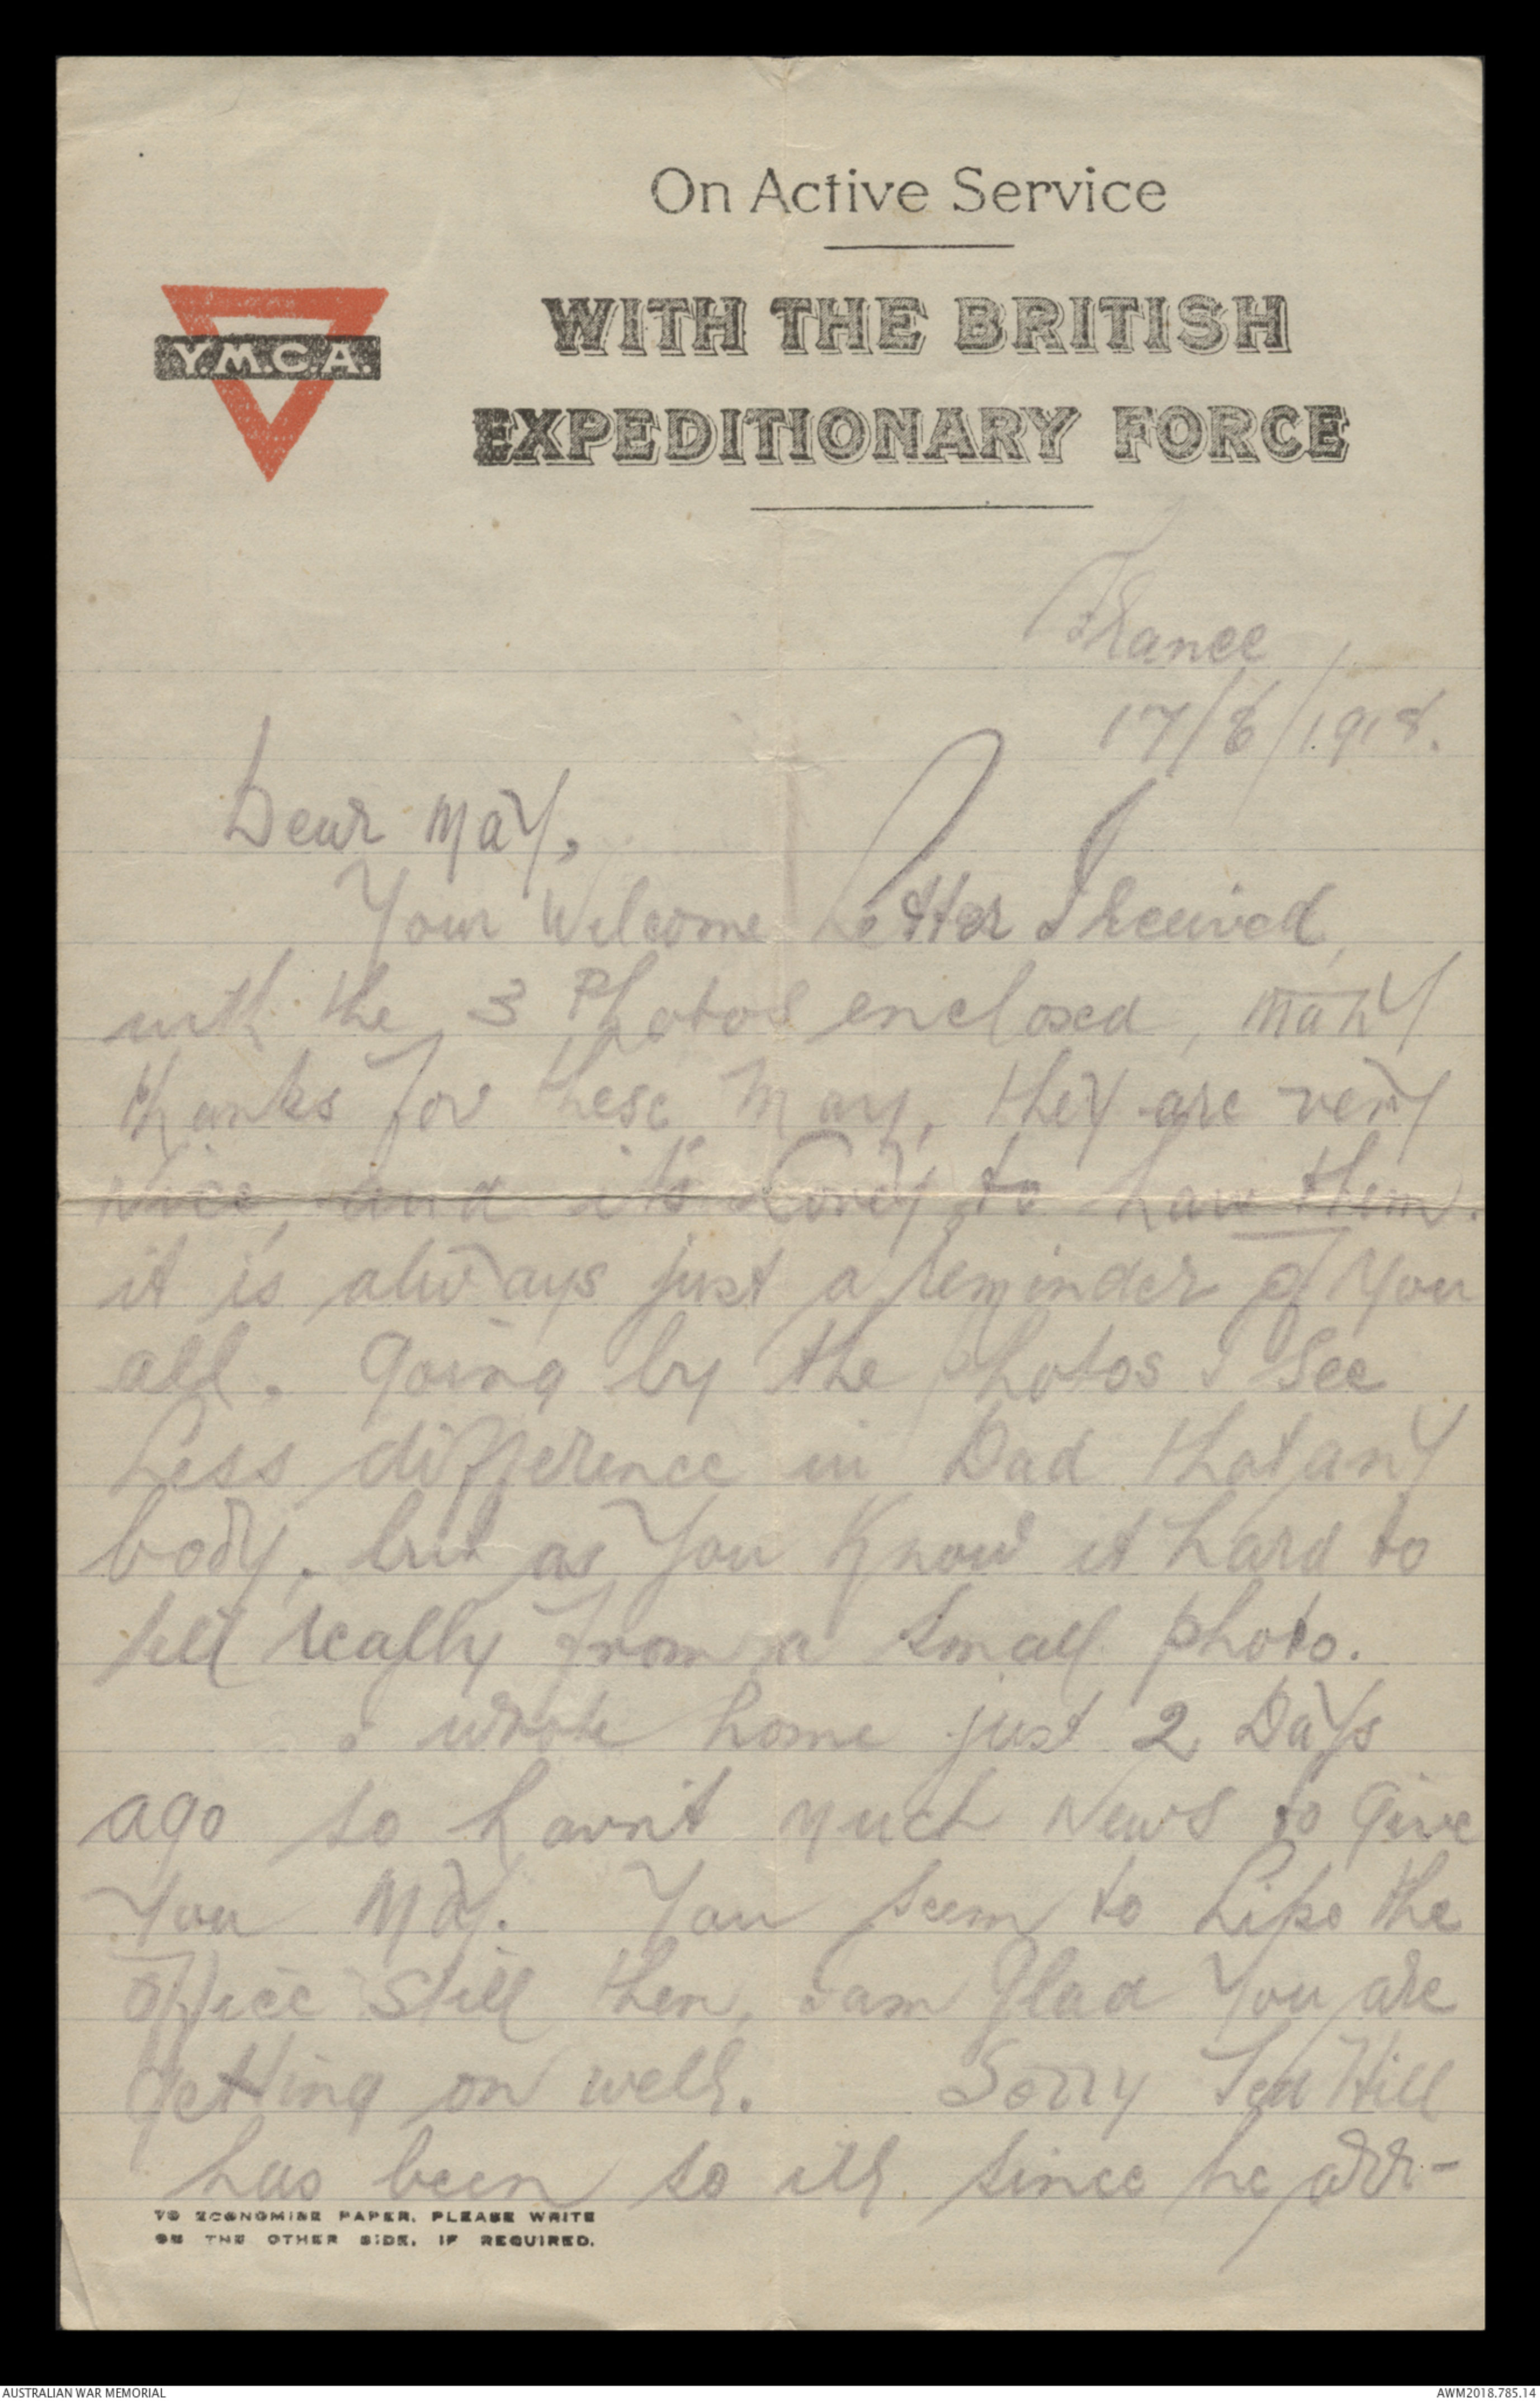 On Active Service
WITH THE BRITISH
Y.M.C.A.
EXPEDITIONARY FORCE
France
17/8/1918.
Dear May,
Your Welcome Letter I Received
with the 3 Photos enclosed, many
thanks for these May, they are very
nice, and it's Lovely to have them.
it is always just a reminder of You
all. Going by the photos I See
Less difference in Dad that any
body, but as You Know it hard to
tell really from a small photo.
I wrote home just 2 Days
ago so havn't much News to Give
You May. You seem to Like the
Office Still then, I am Glad You are
getting on well. Sorry Ted Hill
has been so ill since he arr-
TO ECONOMISE PAPER, PLEASE WRITE
ON THE OTHER SIDE, IF REQUIRED.
AUSTRALIAN WAR MEMORIAL
AWM2018.785.14